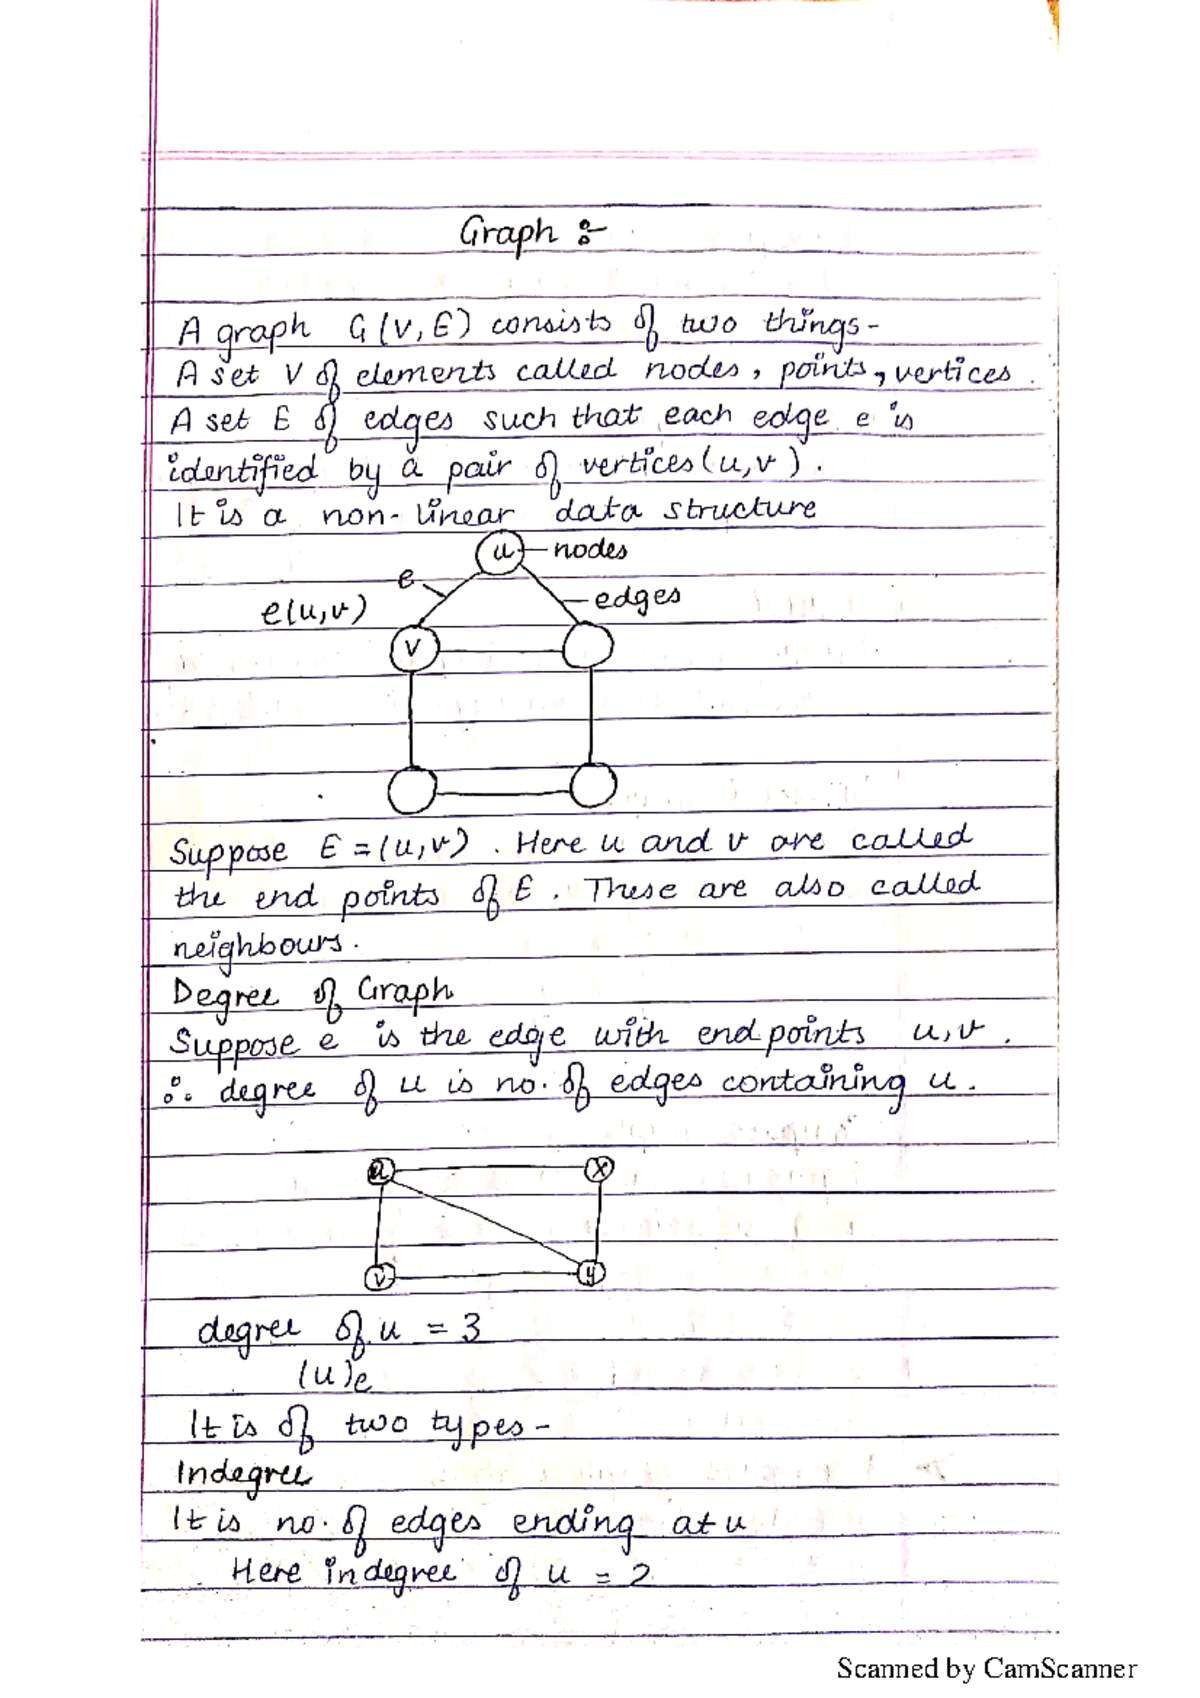 Graph :-
A graph G(V, E) consists of two things-
A set V of elements called nodes, points, vertices.
A set E of edges such that each edge e is
identified by a pair of vertices (u, v).
It is a non-linear data structure
u nodes
e
edges
e(u,v)
v
Suppose E = (u,v). Here u and v are called
the end points of E. These are also called
neighbours.
Degree of Graph
Suppose e is the edge with end points u, v.
∴ degree of u is no. of edges containing u.
u x
v y
degree of u = 3
(u)e
It is of two types-
Indegree
It is no. of edges ending at u
Here indegree of u = 2
Scanned by CamScanner